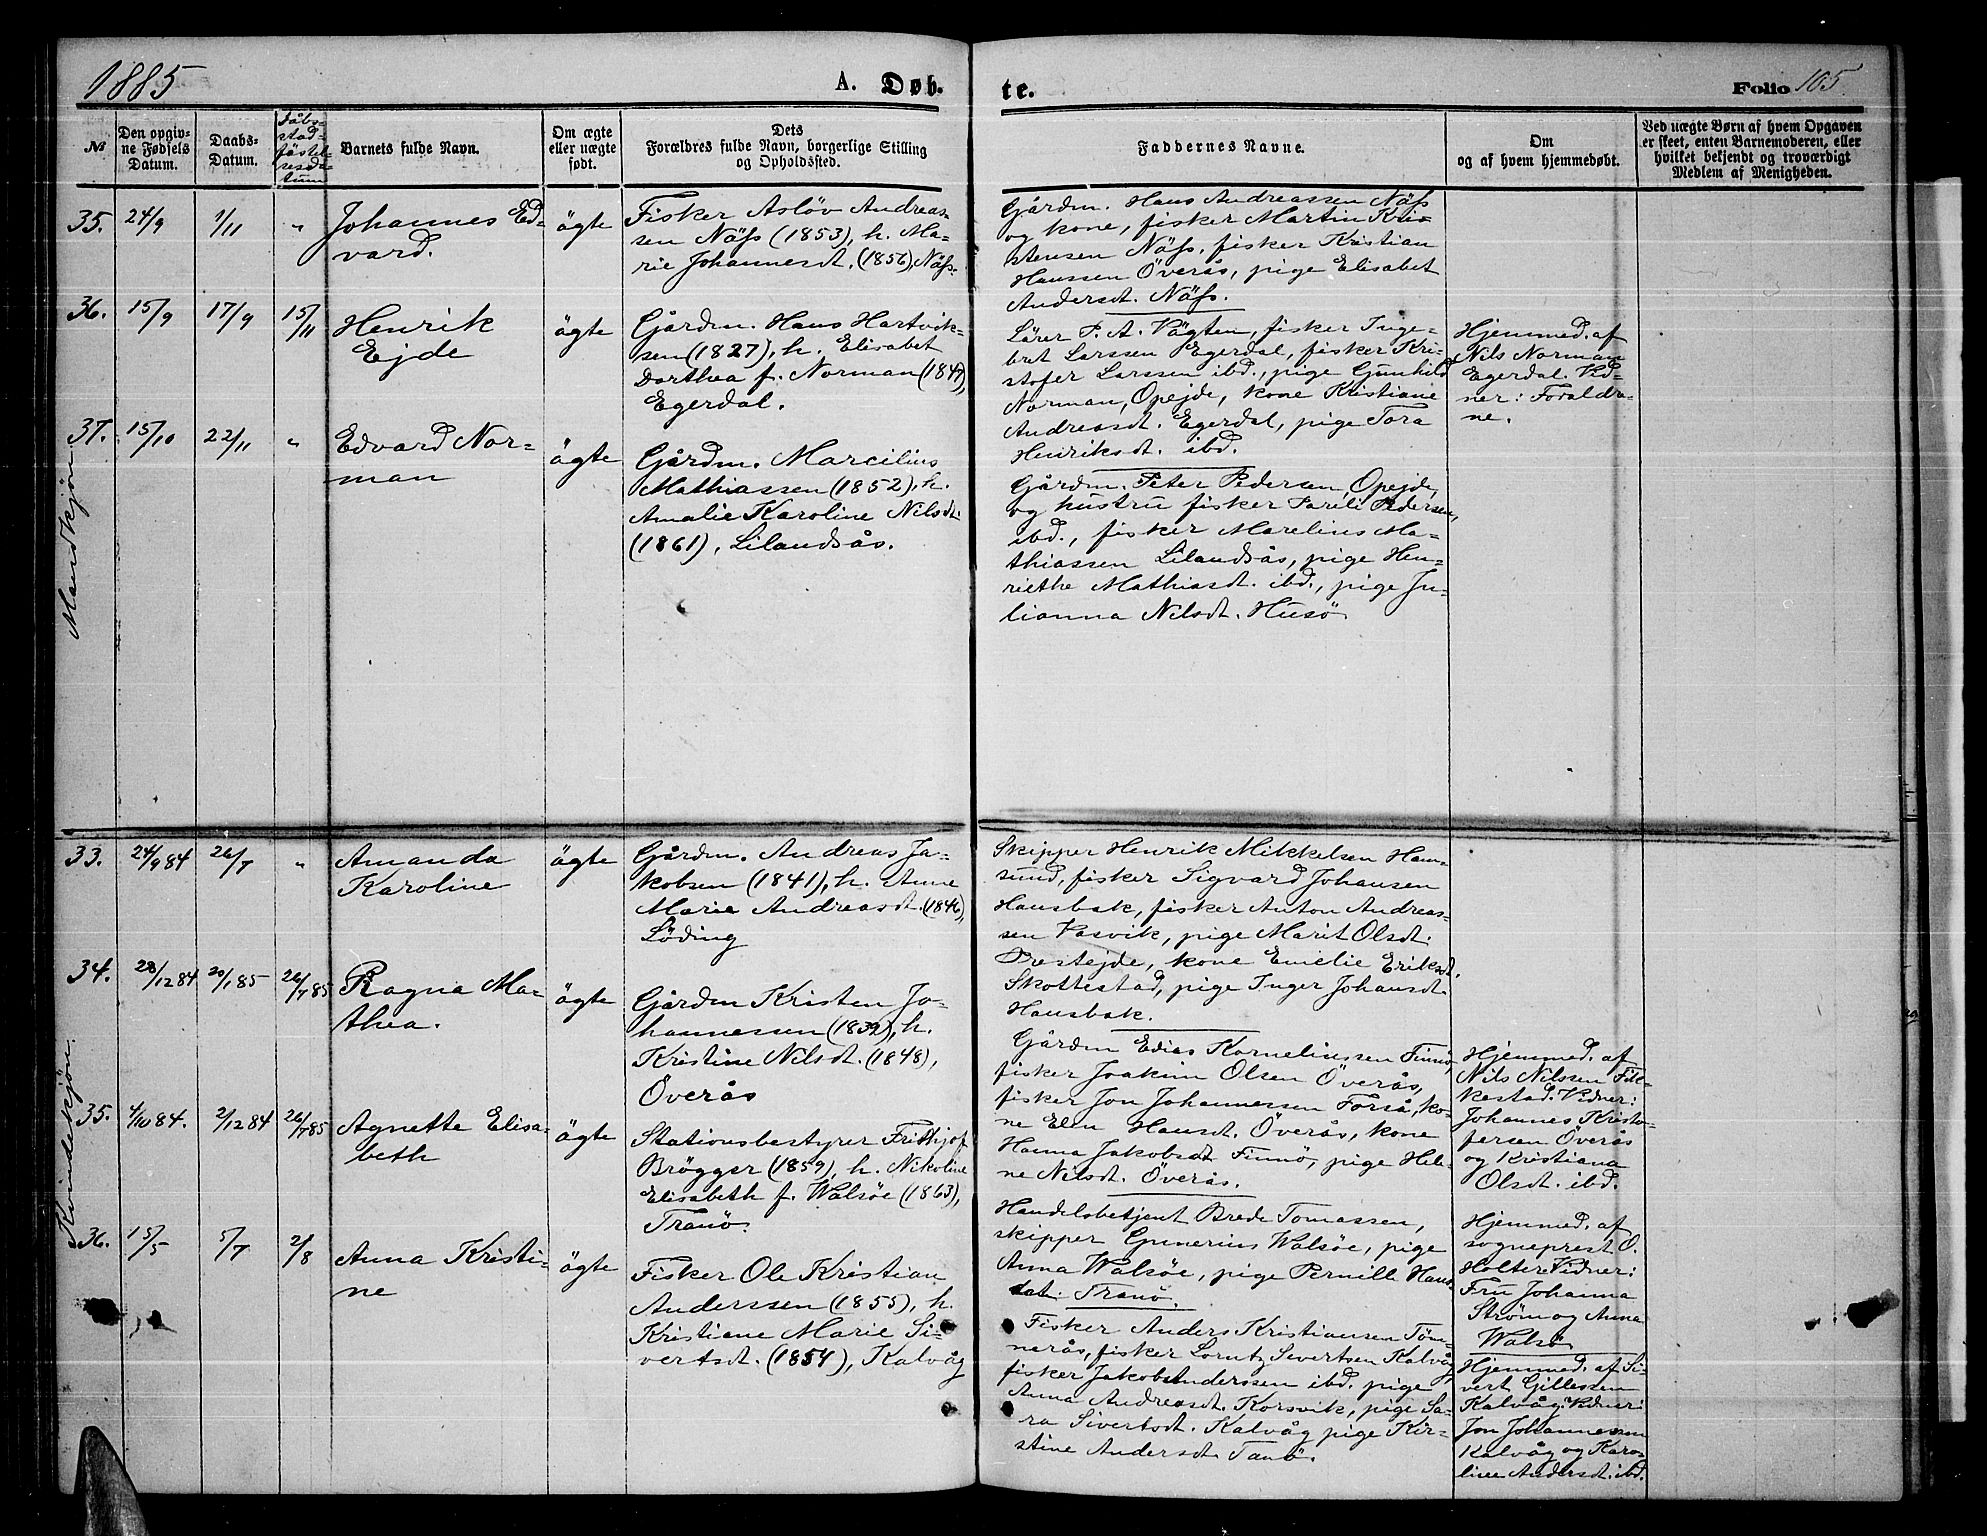 1885
A. Døb.
te.
Folio 105
№
Den opgiv-
ne Fødsels
Datum.
Daabs-
Datum.
Dåbs-
stad-
fästel-
sesda-
tum
Barnets fulde Navn.
Om ægte
eller uægte
født.
Dets
Forældres fulde Navn, borgerlige Stilling
og Opholdssted.
Faddernes Navne.
Om
og af hvem hjemmedøbt.
Ved uægte Børn af hvem Opgaven
er skeet, enten Barnemoderen, eller
hvilket bekjendt og troværdigt
Medlem af Menigheden.
Mandkjøn.
35.
24/9
1/11
"
Johannes Ed-
vard.
ägte
Fisker Asløv Andreas-
sen Näfs (1853), h. Ma-
rie Johannesdt. (1856), Näfs.
Gårdm. Hans Andreassen Näfs
og kone, fisker Martin Kri-
stensen Näfs, fisker Kristian
Hanssen Överås, pige Elisabet
Andersdt. Näfs.
36.
15/9
17/9
15/11
Henrik
Ejde
ägte
Gårdm. Hans Hartvik-
sen (1827), h. Elisabet
Dorthea f. Norman (1849),
Egerdal.
Lärer P. A. Vägten, fisker Inge-
bret Larssen Egerdal, fisker Kri-
stofer Larssen ibd., pige Gunhild
Norman, Opejde, kone Kristiane
Andreasdt. Egerdal, pige Tora
Henriksdt. ibd.
Hjemmed. af
Nils Norman
Egerdal. Vid-
ner: Foraldre-
ne.
37.
15/10
22/11
"
Edvard Nor-
man
ägte
Gårdm. Marcilius
Mathiassen (1852), h.
Amalie Karoline Nilsdt.
(1861), Lilandsås.
Gårdm. Peter Pedersen, Opejde,
og hustru fisker Pareli Pedersen,
ibd., fisker Marelius Ma-
thiassen Lilandsås, pige Hen-
riethe Mathiasdt. ibd., pige Ju-
lianna Nilsdt. Husö
Kvindekjön.
33.
24/9 84
26/7
"
Amanda
Karoline
ägte
Gårdm. Andreas Ja-
kobsen (1841), h. Anne
Marie Andreasdt. (1846),
Löding
Skipper Henrik Mikkelsen Ham-
sund, fisker Sigvard Johansen
Hausbak, fisker Anton Andreas-
sen Vasvik, pige Marit Olsdt.
Prestejde, kone Emelie Eriksdt.
Skottestad, pige Inger Johansdt.
Hausbak.
34.
28/12 84
20/1 85
26/7 85
Ragna Mar-
thea.
ägte
Gårdm Kristen Jo-
hannessen (1839), h.
Kristine Nilsdt. (1848),
Överås
Gårdm Edias Kornelinssen Finnö,
fisker Joakim Olsen Överås,
fisker Jon Johannessen Forså, ko-
ne Elen Hansdt. Överås, kone
Hanna Jakobsdt Finnö, pige Hele-
ne Nilsdt. Överås.
Hjemmed. af
Nils Nilssen Fil-
kestad. Vidner:
Johannes Kristo-
fersen Överås
og Kristiana
Olsdt. ibd.
35.
4/10 84.
2/12 84
26/7 85
Agnette Elisa-
beth
ägte
Stationsbestyrer Fridthjof
Brögger (1859), h. Nikoline
Elisabeth f. Walsöe (1863),
Tranö
Handelsbetjent Brede Tomassen,
skipper Gunerius Walsöe, pige
Anna Walsöe, pige Pernille Hans-
dat. Tranö.
Hjemmed. af
sogneprest O.
Holter. Vidner:
Fru Johanna
Ström og Anna
Walsö
36.
15/5
5/7
2/8
Anna Kristi-
ne
ägte
Fisker Ole Kristian
Anderssen (1855), h.
Kristiane Marie Si-
vertsdt. (1854), Kalvåg
Fisker Anders Kristiansen Töm-
nerås, fisker Lorntz Sivertsen Kalvåg,
fisker Jakob Anderssen ibd. pige
Anna Andreasdt. Korsvik, pige Sa-
ra Sivertsdt. Kalvåg pige Kir-
stine Andersdt. Tanö.
Hjemmed. af Si-
vert Gillessen
Kalvåg. Vidner:
Jon Johannessen
Kalvåg og Karo-
line Andersdt. ibd.